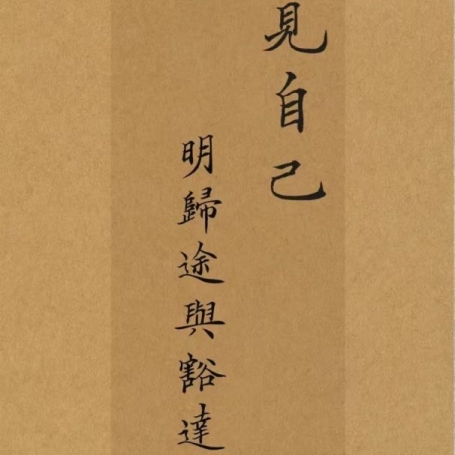 見自己
明歸途與豁達